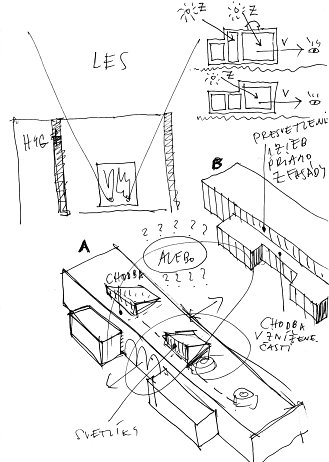 Z
Z
LES
V
Z
HYG
V
PRESVETLENIE
IZIEB
PRIAMO
Z FASÁDY
B
? ? ? ?
A
ALEBO
CHODBA
? ? ? ?
CHODBA
V ZNÍŽENEJ
ČASTI
SVETLÍKY